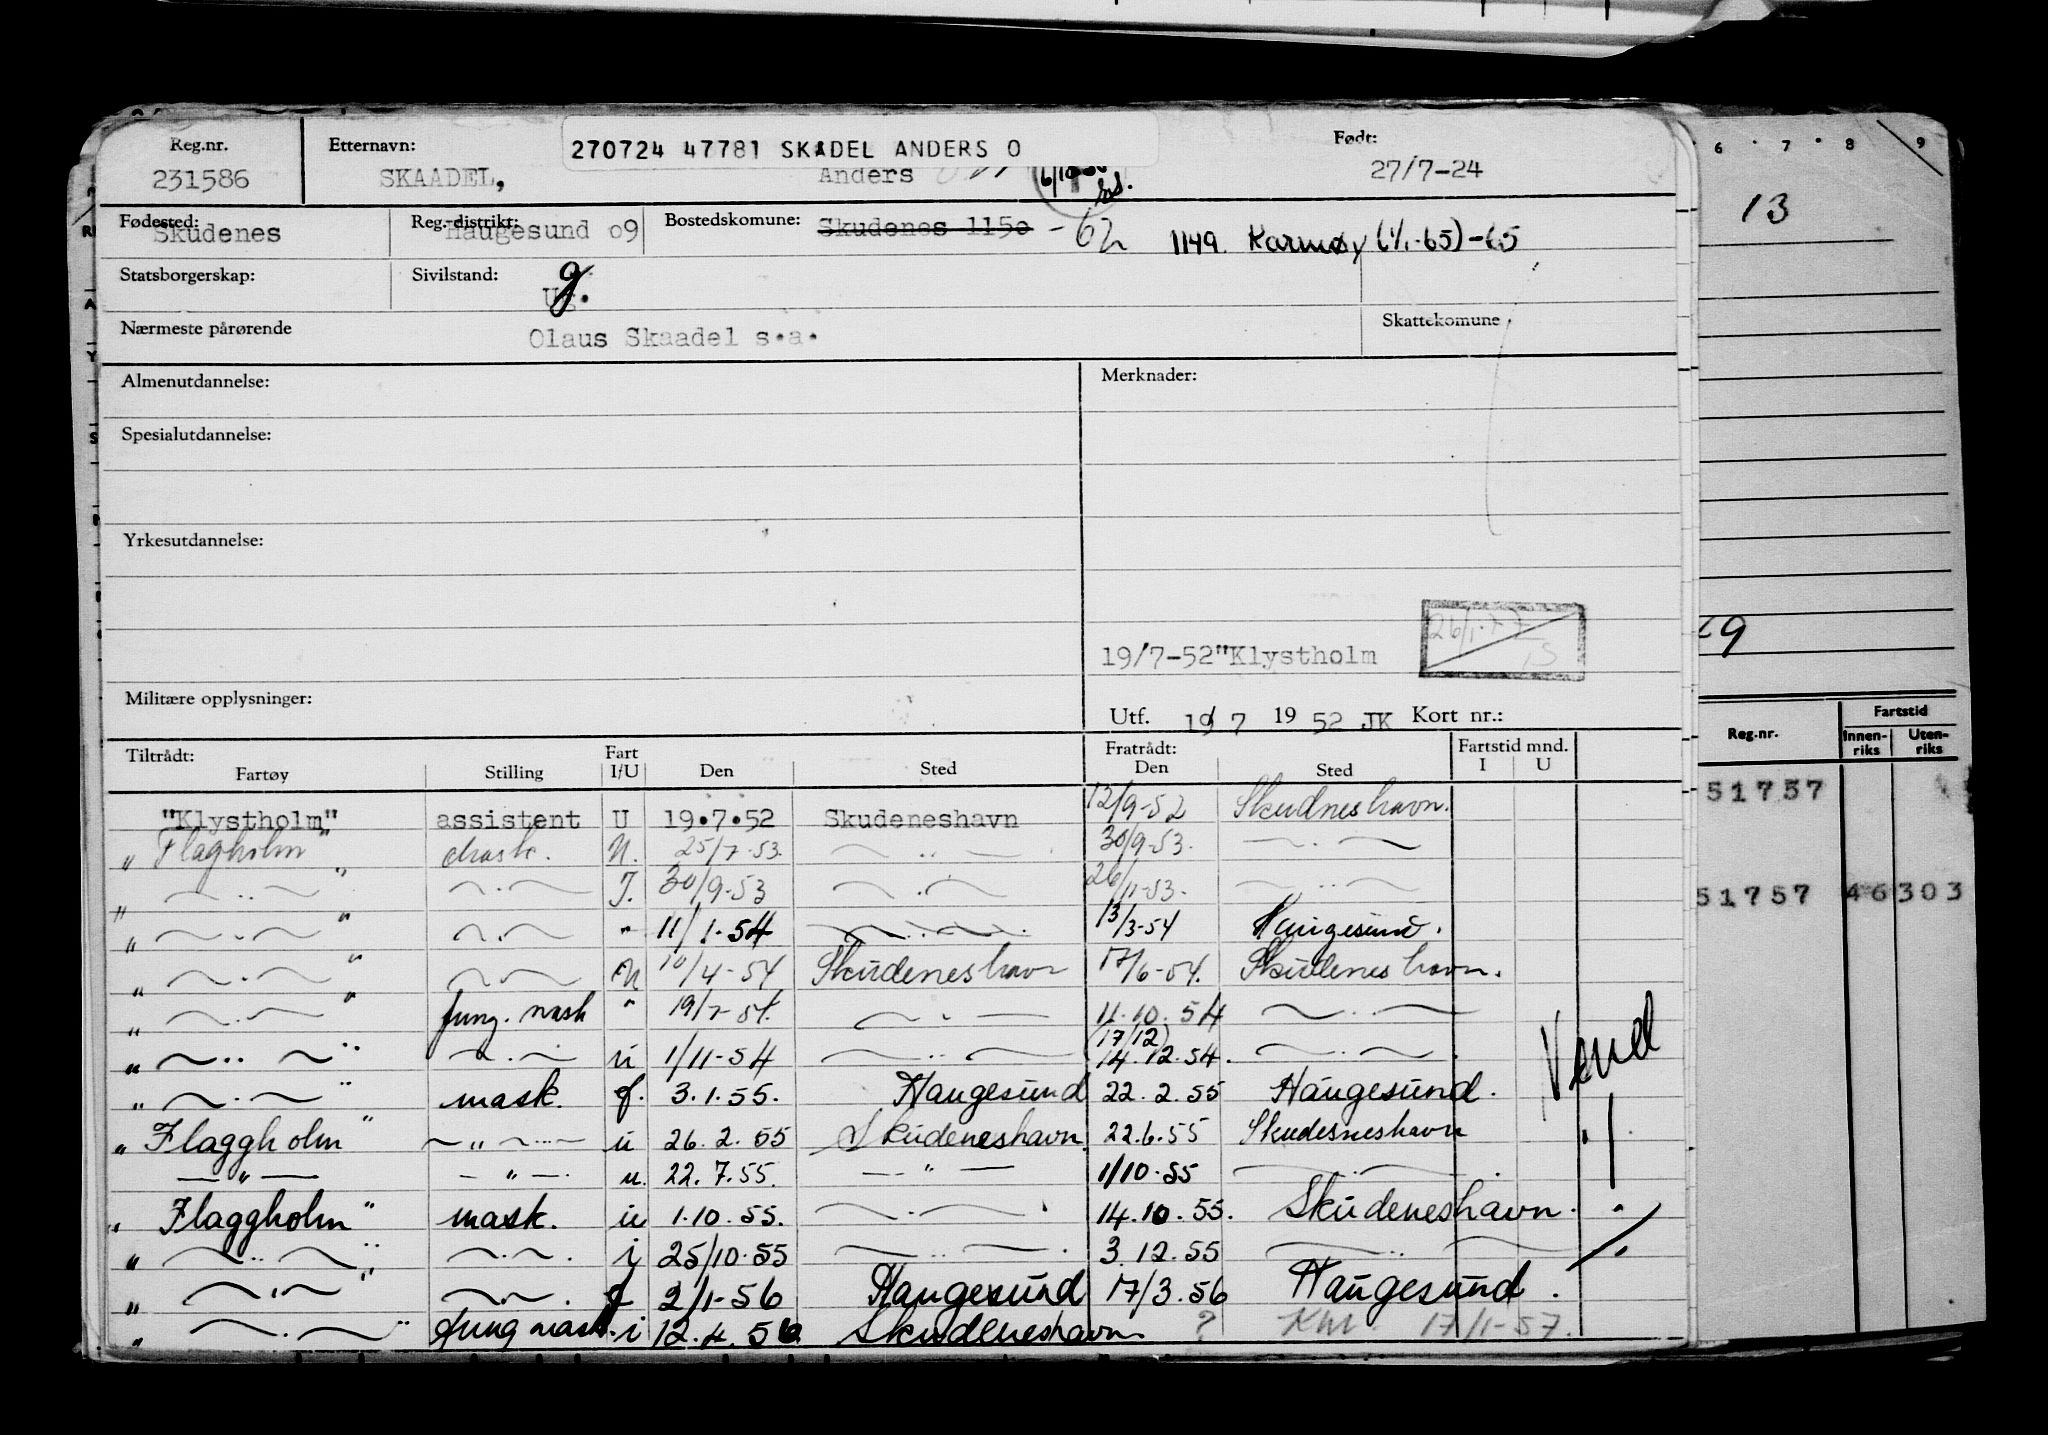 Reg.nr. Etternavn: 270724 47781 SKADEL ANDERS O Født:
231586 SKAADEL, Anders 27/7-24
Fødested: Reg.-distrikt: Bostedskomune:
Skudenes Haugesund 09 Skudenes 1150 -62 1149. Karmøy (1/1-65)-65
Statsborgerskap: Sivilstand: g
Ug.
Nærmeste pårørende Olaus Skaadel s.a. Skattekomune
Almenutdannelse: Merknader:
Spesialutdannelse:
Yrkesutdannelse:
19/7-52"Klystholm 26/1-77
Militære opplysninger: Utf. 19/7 1952 JK Kort nr.:
Tiltrådt: Fart Fratrådt: Fartstid mnd.
Fartøy Stilling I/U Den Sted Den Sted I U
"Klystholm" assistent U 19.7.52 Skudeneshavn 12/9-52 Skudneshavn.
" Flagholm" mask. U. 25/7-53. — " — 30/9-53. — " —
" — " — " — " — I. 30/9-53 — " — 26/11-53. — " —
" — " — " — " — " 11/1-54 — " — 13/3-54 Haugesund.
" — " — " — " — U 10/4-54 Skudeneshavn 17/6-54. Skudeneshavn.
" — " — " jung. mask " 19/7-54. — " — 11.10.54 — " —
(17/12)
" — " — " — " — u 1/11-54 — " — 14.12.54. — " —
" — " — " mask. f. 3.1.55. Haugesund 22.2.55 Haugesund.
Vend
" Flaggholm" — " — u 26.2.55 Skudeneshavn 22.6.55 Skudesneshavn
— " — — " — u. 22.7.55. — " — 1/10-55 — " —
" Flaggholm" mask. u 1.10.55. — " — 14.10.55. Skudeneshavn.
" — " — " — " — i 25/10-55 — " — 3.12.55 — " —
" — " — " — " — f 2/1-56 Haugesund 17/3.56 Haugesund.
" — " — " Jung mask. i 12.4.56 Skudeneshavn ? 17/1-57.
6 7 8 9
13
29
Reg.nr. Fartstid
Innen-riks Uten-riks
51757
51757 46303